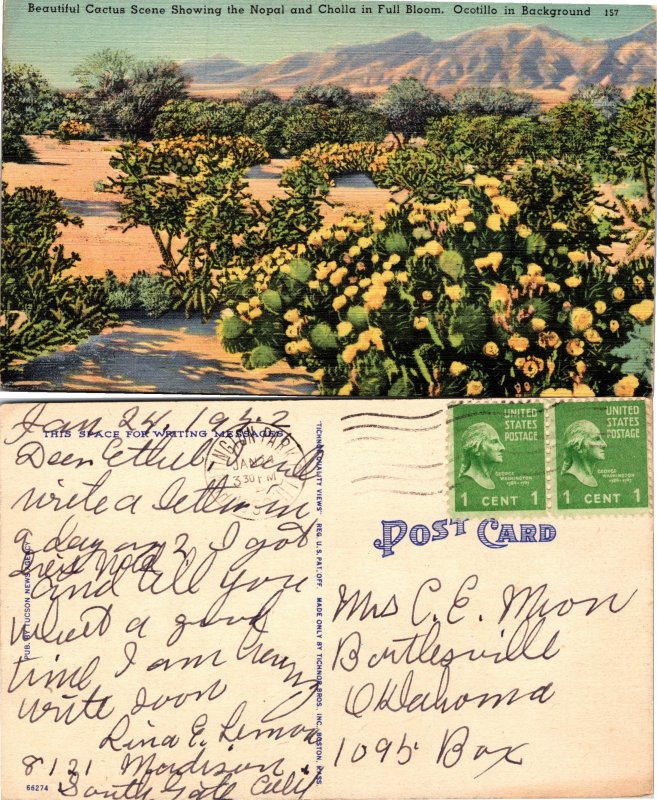 Beautiful Cactus Scene Showing the Nopal and Cholla in Full Bloom. Ocotillo in Background 157
THIS SPACE FOR WRITING MESSAGES
Jan 24, 1952
Dear Ethel will
write a letter in
a day or 2 I got
and tell you
what a good
time I am having
write soon
Lina E. Lemon
8121 Madison
South Gate Calif
66274
PUB. BY TUCSON NEWS AGENCY
"TICHNOR QUALITY VIEWS" REG. U. S. PAT. OFF. MADE ONLY BY TICHNOR BROS. INC. BOSTON, MASS.
JAN 24
3 30 PM
UNITED STATES POSTAGE
GEORGE WASHINGTON
1 CENT 1
UNITED STATES POSTAGE
GEORGE WASHINGTON
1 CENT 1
POST CARD
Mrs C. E. Mion
Bartlesville
Oklahoma
1095 Box